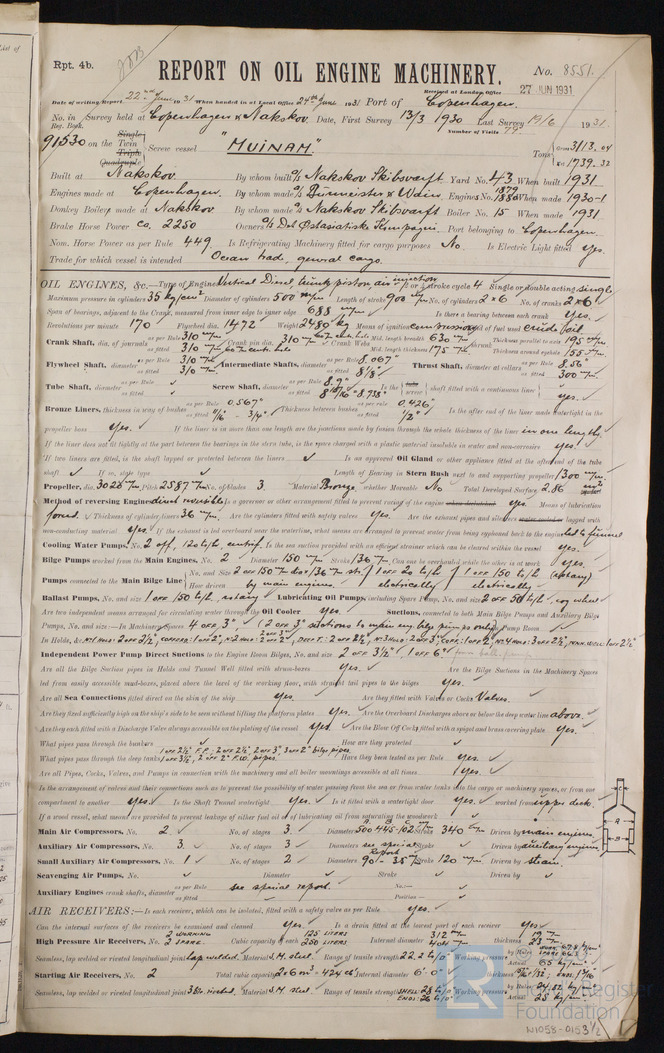 Rpt. 4b.
REPORT ON OIL ENGINE MACHINERY.
No. 8551.
Received at London Office 27 JUN 1931
Date of writing Report 22nd June 1931 When handed in at Local Office 24th June 1931 Port of Copenhagen.
No. in Survey held at Copenhagen & Nakskov. Date, First Survey 13/3 1930 Last Survey 19/6 1931.
Reg. Book. Number of Visits 179.
91530 on the Single Twin Triple Quadruple Screw vessel "MUINAM" Tons Gross 3113.04 Net 1739.32
Built at Nakskov By whom built A/S Nakskov Skibsværft Yard No. 43 When built 1931
Engines made at Copenhagen. By whom made A/S Burmeister & Wain. Engines No. 1879 1880 When made 1930-1
Donkey Boilers made at Nakskov By whom made A/S Nakskov Skibsværft Boiler No. 15 When made 1931
Brake Horse Power ca. 2250 Owners A/S Det Østasiatiske Kompagni Port belonging to Copenhagen.
Nom. Horse Power as per Rule 449. Is Refrigerating Machinery fitted for cargo purposes No. Is Electric Light fitted yes.
Trade for which vessel is intended Ocean trade, general cargo.
OIL ENGINES, &c.—Type of Engines Vertical Diesel, trunk piston, air injection 2 or 4 stroke cycle 4 Single or double acting single
Maximum pressure in cylinders 35 kg/cm² Diameter of cylinders 500 m/m Length of stroke 900 m/m No. of cylinders 2 x 6 No. of cranks 2 x 6
Span of bearings, adjacent to the Crank, measured from inner edge to inner edge 688 m/m Is there a bearing between each crank Yes.
Revolutions per minute 170 Flywheel dia. 1472 Weight 2480 kg Means of ignition compression Kind of fuel used crude oil
Crank Shaft, dia. of journals as per Rule 310 m/m as fitted 310 m/m Crank pin dia. 310 m/m Crank Webs Mid. length breadth 630 m/m Mid. length thickness 175 m/m Thickness parallel to axis 195 m/m Thickness around eyehole 155 m/m
Flywheel Shaft, diameter as per Rule 310 m/m as fitted 310 m/m Intermediate Shafts, diameter as per Rule 8.067" as fitted 8 1/8" Thrust Shaft, diameter at collars as per Rule 8.56" as fitted 300 m/m
Tube Shaft, diameter as per Rule as fitted Screw Shaft, diameter as per Rule 8.9" as fitted Is the shaft fitted with a continuous liner yes.
Bronze Liners, thickness in way of bushes as per Rule 0.567" as fitted 11/16" - 3/4" Thickness between bushes as per rule 0.426" as fitted 1/2" Is the after end of the liner made watertight in the
propeller boss yes. If the liner is in more than one length are the junctions made by fusion through the whole thickness of the liner in one length.
If the liner does not fit tightly at the part between the bearings in the stern tube, is the space charged with a plastic material insoluble in water and non-corrosive yes.
If two liners are fitted, is the shaft lapped or protected between the liners Is an approved Oil Gland or other appliance fitted at the after end of the tube
shaft If so, state type Length of Bearing in Stern Bush next to and supporting propeller 1300 m/m
Propeller, dia. 3028 m/m Pitch 2587 m/m No. of blades 3 Material Bronze whether Moveable No Total Developed Surface 2.86 m²
Method of reversing Engines direct reversible Is a governor or other arrangement fitted to prevent racing of the engine yes. Means of lubrication
forced. Thickness of cylinder liners 36 m/m. Are the cylinders fitted with safety valves yes. Are the exhaust pipes and silencers lagged with
non-conducting material yes. If the exhaust is led overboard near the waterline, what means are arranged to prevent water from being syphoned back to the engine led to funnel
Cooling Water Pumps, No. 2 off, 120 to/h, centrif. Is the sea suction provided with an efficient strainer which can be cleared within the vessel yes.
Bilge Pumps worked from the Main Engines, No. 2 Diameter 150 m/m Stroke 136 m/m Can one be overhauled while the other is at work yes.
Pumps connected to the Main Bilge Line No. and Size How driven by main engines electrically electrically
Ballast Pumps, No. and size 1 off 150 to/h, rotary Lubricating Oil Pumps, including Spare Pump, No. and size 2 off 50 to/h, cog wheel
Are two independent means arranged for circulating water through the Oil Cooler Yes. Suctions, connected to both Main Bilge Pumps and Auxiliary Bilge
Pumps, No. and size:—In Machinery Spaces 4 off, 3" (2 off 3" stations to main eng bilge pumps only) Pump Room
In Holds, &c.
Independent Power Pump Direct Suctions to the Engine Room Bilges, No. and size 2 off 3 1/2", 1 off 6"
Are all the Bilge Suction pipes in Holds and Tunnel Well fitted with strum-boxes Yes. Are the Bilge Suctions in the Machinery Spaces
led from easily accessible mud-boxes, placed above the level of the working floor, with straight tail pipes to the bilges yes.
Are all Sea Connections fitted direct on the skin of the ship yes. Are they fitted with Valves or Cocks Valves.
Are they fixed sufficiently high on the ship's side to be seen without lifting the platform plates yes. Are the Overboard Discharges above or below the deep water line above.
Are they each fitted with a Discharge Valve always accessible on the plating of the vessel yes. Are the Blow Off Cocks fitted with a spigot and brass covering plate yes.
What pipes pass through the bunkers How are they protected
What pipes pass through the deep tanks Have they been tested as per Rule yes.
Are all Pipes, Cocks, Valves, and Pumps in connection with the machinery and all boiler mountings accessible at all times yes.
Is the arrangement of valves and their connections such as to prevent the possibility of water passing from the sea or from water tanks into the cargo or machinery spaces, or from one
compartment to another yes. Is the Shaft Tunnel watertight yes. Is it fitted with a watertight door yes. worked from upper deck.
If a wood vessel, what means are provided to prevent leakage of either fuel oil or lubricating oil from saturating the woodwork
Main Air Compressors, No. 2. No. of stages 3 Diameters 500-445-102 m/m Stroke 340 m/m Driven by main engines
Auxiliary Air Compressors, No. 3. No. of stages 3 Diameters see special Report Stroke Driven by auxiliary engines
Small Auxiliary Air Compressors, No. 1 No. of stages 2 Diameters 90 - 35 m/m Stroke 120 m/m Driven by steam.
Scavenging Air Pumps, No. Diameter Stroke Driven by
Auxiliary Engines crank shafts, diameter as per Rule as fitted see special report. No. Position
AIR RECEIVERS:—Is each receiver, which can be isolated, fitted with a safety valve as per Rule yes.
Can the internal surfaces of the receivers be examined and cleaned yes. Is a drain fitted at the lowest part of each receiver yes.
High Pressure Air Receivers, No. 2 WORKING 2 SPARE. Cubic capacity of each 125 LITERS 250 LITERS Internal diameter 312 m/m thickness 19 m/m 23 m/m
Seamless, lap welded or riveted longitudinal joint lap welded. Material S.M. steel. Range of tensile strength Working pressure by Rules Actual 65 kg/cm²
Starting Air Receivers, No. 2 Total cubic capacity Internal diameter 6' 0" thickness
Seamless, lap welded or riveted longitudinal joint riveted, Material S.M. steel Range of tensile strength Working pressure by Rules Actual 25 kg/cm²
LR
Lloyd's Register
Foundation
N1058-0153 1/2